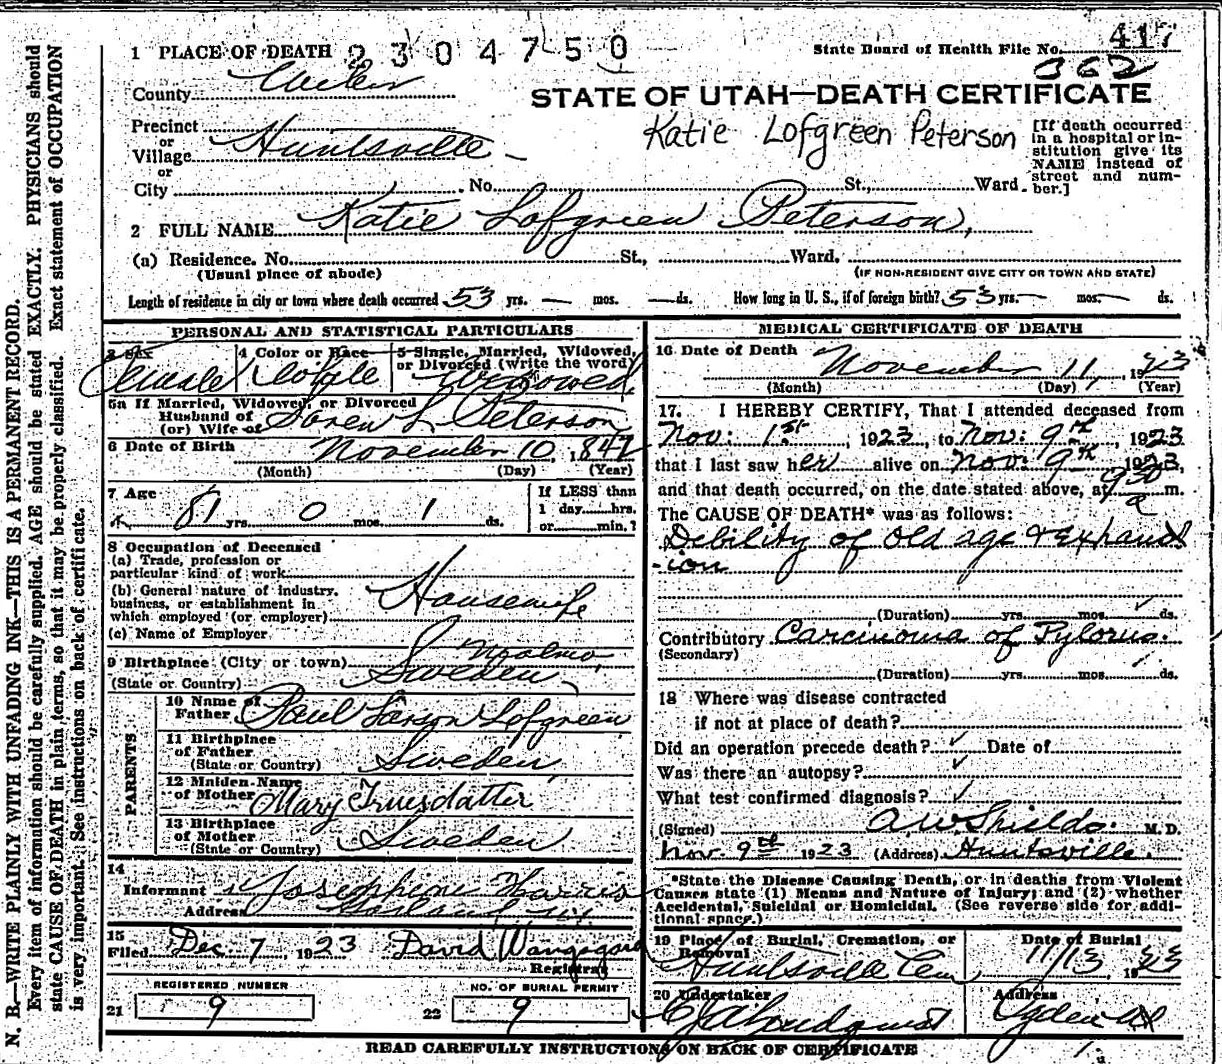 N. B.—WRITE PLAINLY WITH UNFADING INK—THIS IS A PERMANENT RECORD.
Every item of information should be carefully supplied. AGE should be stated EXACTLY. PHYSICIANS should
state CAUSE OF DEATH in plain terms, so that it may be properly classified. Exact statement of OCCUPATION
is very important. See instructions on back of certificate.
1 PLACE OF DEATH 2304750
State Board of Health File No. 417
362
County Weber
STATE OF UTAH—DEATH CERTIFICATE
Katie Lofgreen Peterson
Precinct
or
Village Huntsville
or
City No. St., Ward
[If death occurred
in a hospital or in-
stitution give its
NAME instead of
street and num-
ber.]
2 FULL NAME Katie Lofgreen Peterson,
(a) Residence. No. St., Ward.
(Usual place of abode) (IF NON-RESIDENT GIVE CITY OR TOWN AND STATE)
Length of residence in city or town where death occurred 53 yrs. — mos. — ds. How long in U. S., if of foreign birth? 53 yrs. — mos. — ds.
PERSONAL AND STATISTICAL PARTICULARS
3 Sex Female
4 Color or Race
5 Single, Married, Widowed,
or Divorced (write the word)
Widowed
5a If Married, Widowed, or Divorced
Husband of
(or) Wife of Soren L Peterson
6 Date of Birth November 10, 1842
(Month) (Day) (Year)
7 Age
81 yrs. 0 mos. 1 ds.
If LESS than
1 day hrs.
or min.?
8 Occupation of Deceased
(a) Trade, profession or
particular kind of work
(b) General nature of industry,
business, or establishment in
which employed (or employer) Housewife
(c) Name of Employer
9 Birthplace (City or town) Malmo,
(State or Country) Sweden
PARENTS
10 Name of
Father Paul Larson Lofgreen
11 Birthplace
of Father
(State or Country) Sweden
12 Maiden Name
of Mother Mary
13 Birthplace
of Mother
(State or Country) Sweden
14
Informant Josephene Harris
Address Garland, Ut.
15
Filed Dec 7, 1923 David
Registrar
REGISTERED NUMBER
21 9
NO. OF BURIAL PERMIT
22 9
MEDICAL CERTIFICATE OF DEATH
16 Date of Death November 11, 1923
(Month) (Day) (Year)
17. I HEREBY CERTIFY, That I attended deceased from
Nov: 1st, 1923, to Nov: 9th 1923
that I last saw her alive on Nov: 9th 1923,
and that death occurred, on the date stated above, at 9 30 a m.
The CAUSE OF DEATH* was as follows:
Debility of old age & exhaust
-ion
(Duration) yrs. mos. ds.
Contributory Carcinoma of Pylorus.
(Secondary)
(Duration) yrs. mos. ds.
18 Where was disease contracted
if not at place of death?
Did an operation precede death? ✓ Date of
Was there an autopsy? ✓
What test confirmed diagnosis? ✓
(Signed) A W Shields. M. D.
Nov. 9th 1923 (Address) Huntsville.
*State the Disease Causing Death, or in deaths from Violent
Causes state (1) Means and Nature of Injury; and (2) whether
Accidental, Suicidal or Homicidal. (See reverse side for addi-
tional space.)
19 Place of Burial, Cremation, or
Removal
Huntsville Cem,
Date of Burial
11/13, 1923
20 Undertaker
Address
Ogden Ut
READ CAREFULLY INSTRUCTIONS ON BACK OF CERTIFICATE